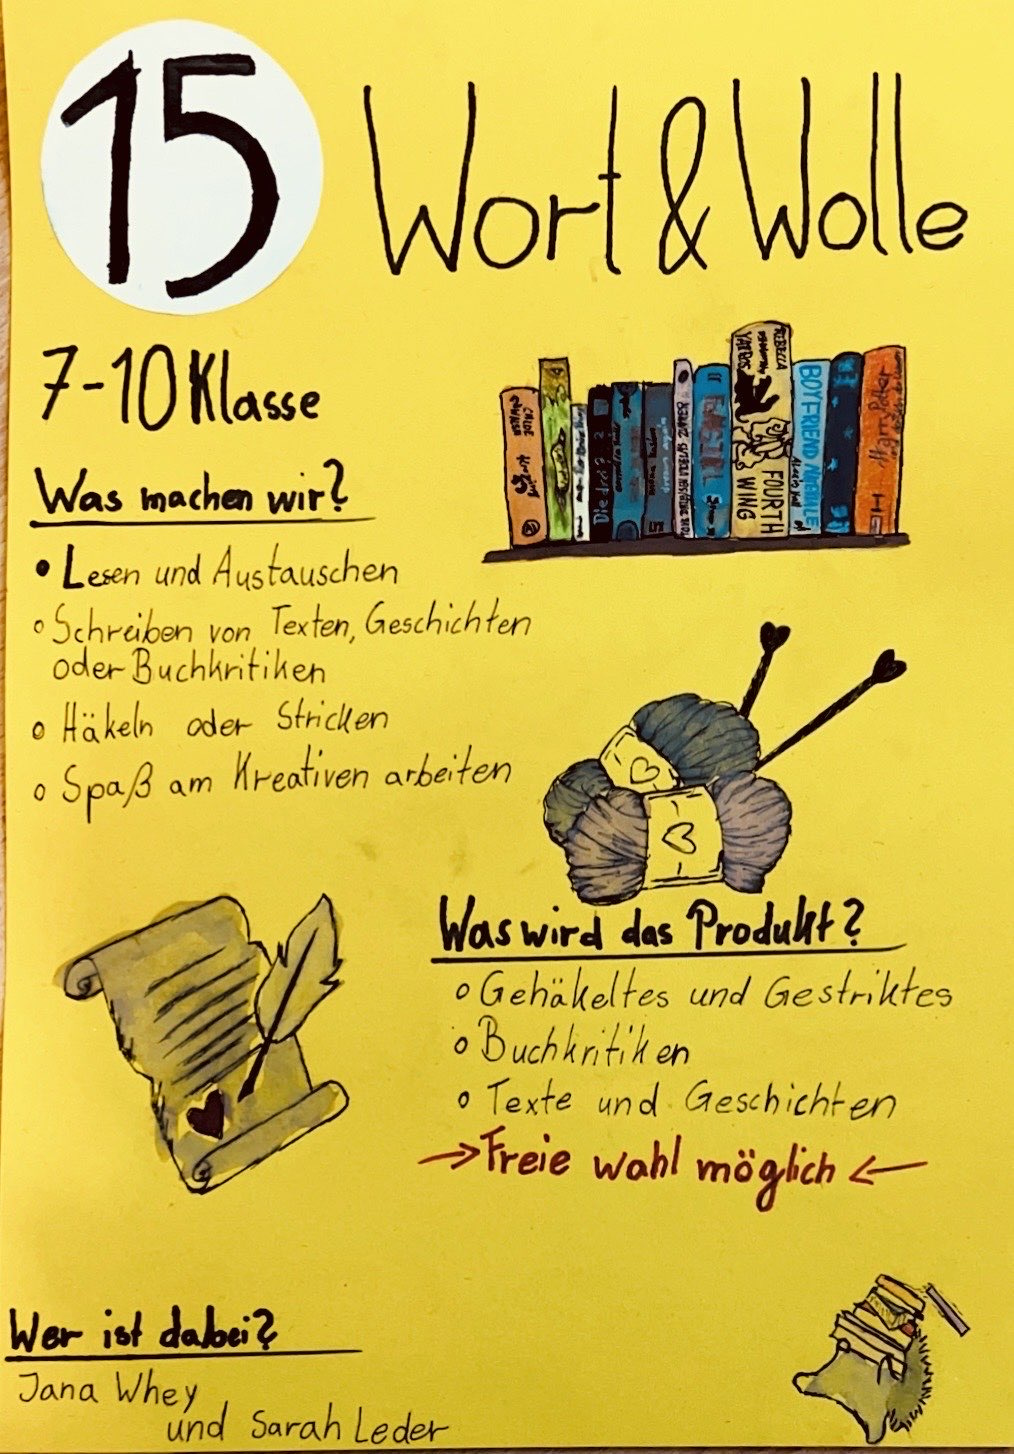 15
Wort & Wolle
7-10 Klasse
Was machen wir?
• Lesen und Austauschen
◦ Schreiben von Texten, Geschichten
oder Buchkritiken
◦ Häkeln oder Stricken
◦ Spaß am Kreativen arbeiten
REBECCA
YARROS
FOURTH
WING
BOYFRIEND
Harry Potter
dream again
Was wird das Produkt?
◦ Gehäkeltes und Gestriktes
◦ Buchkritiken
◦ Texte und Geschichten
→ Freie wahl möglich ←
Wer ist dabei?
Jana Whey
und Sarah Leder